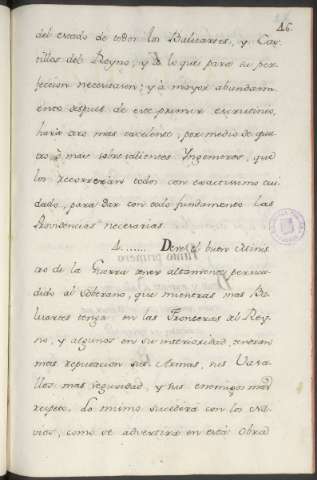 46.
del estado de todos los Baluartes, y Cas-
tillos del Reyno; y de lo que para su per-
feccion necesitasen; y a mayor abundam.
ento despues de este primer escrutinio,
hara otro mas excelente, por medio de qua-
tro, o mas sobresalientes Yngenieros, que
los recorreran todos con exactissimo cui-
dado, para dar con todo fundamento las
Providencias necesarias.
4...... Deve el buen Minis-
tro de la Guerra tener altamente persua-
dido al Soberano, que mientras mas Ba-
luartes tenga en las Fronteras del Rey-
no, y algunos en su interiosidad, tendran
mas reputacion sus Armas, sus Vasa-
llos mas seguridad, y sus enemigos mas
respeto. Lo mismo sucederá con los Na-
vios, como se advertirá en esta Obra